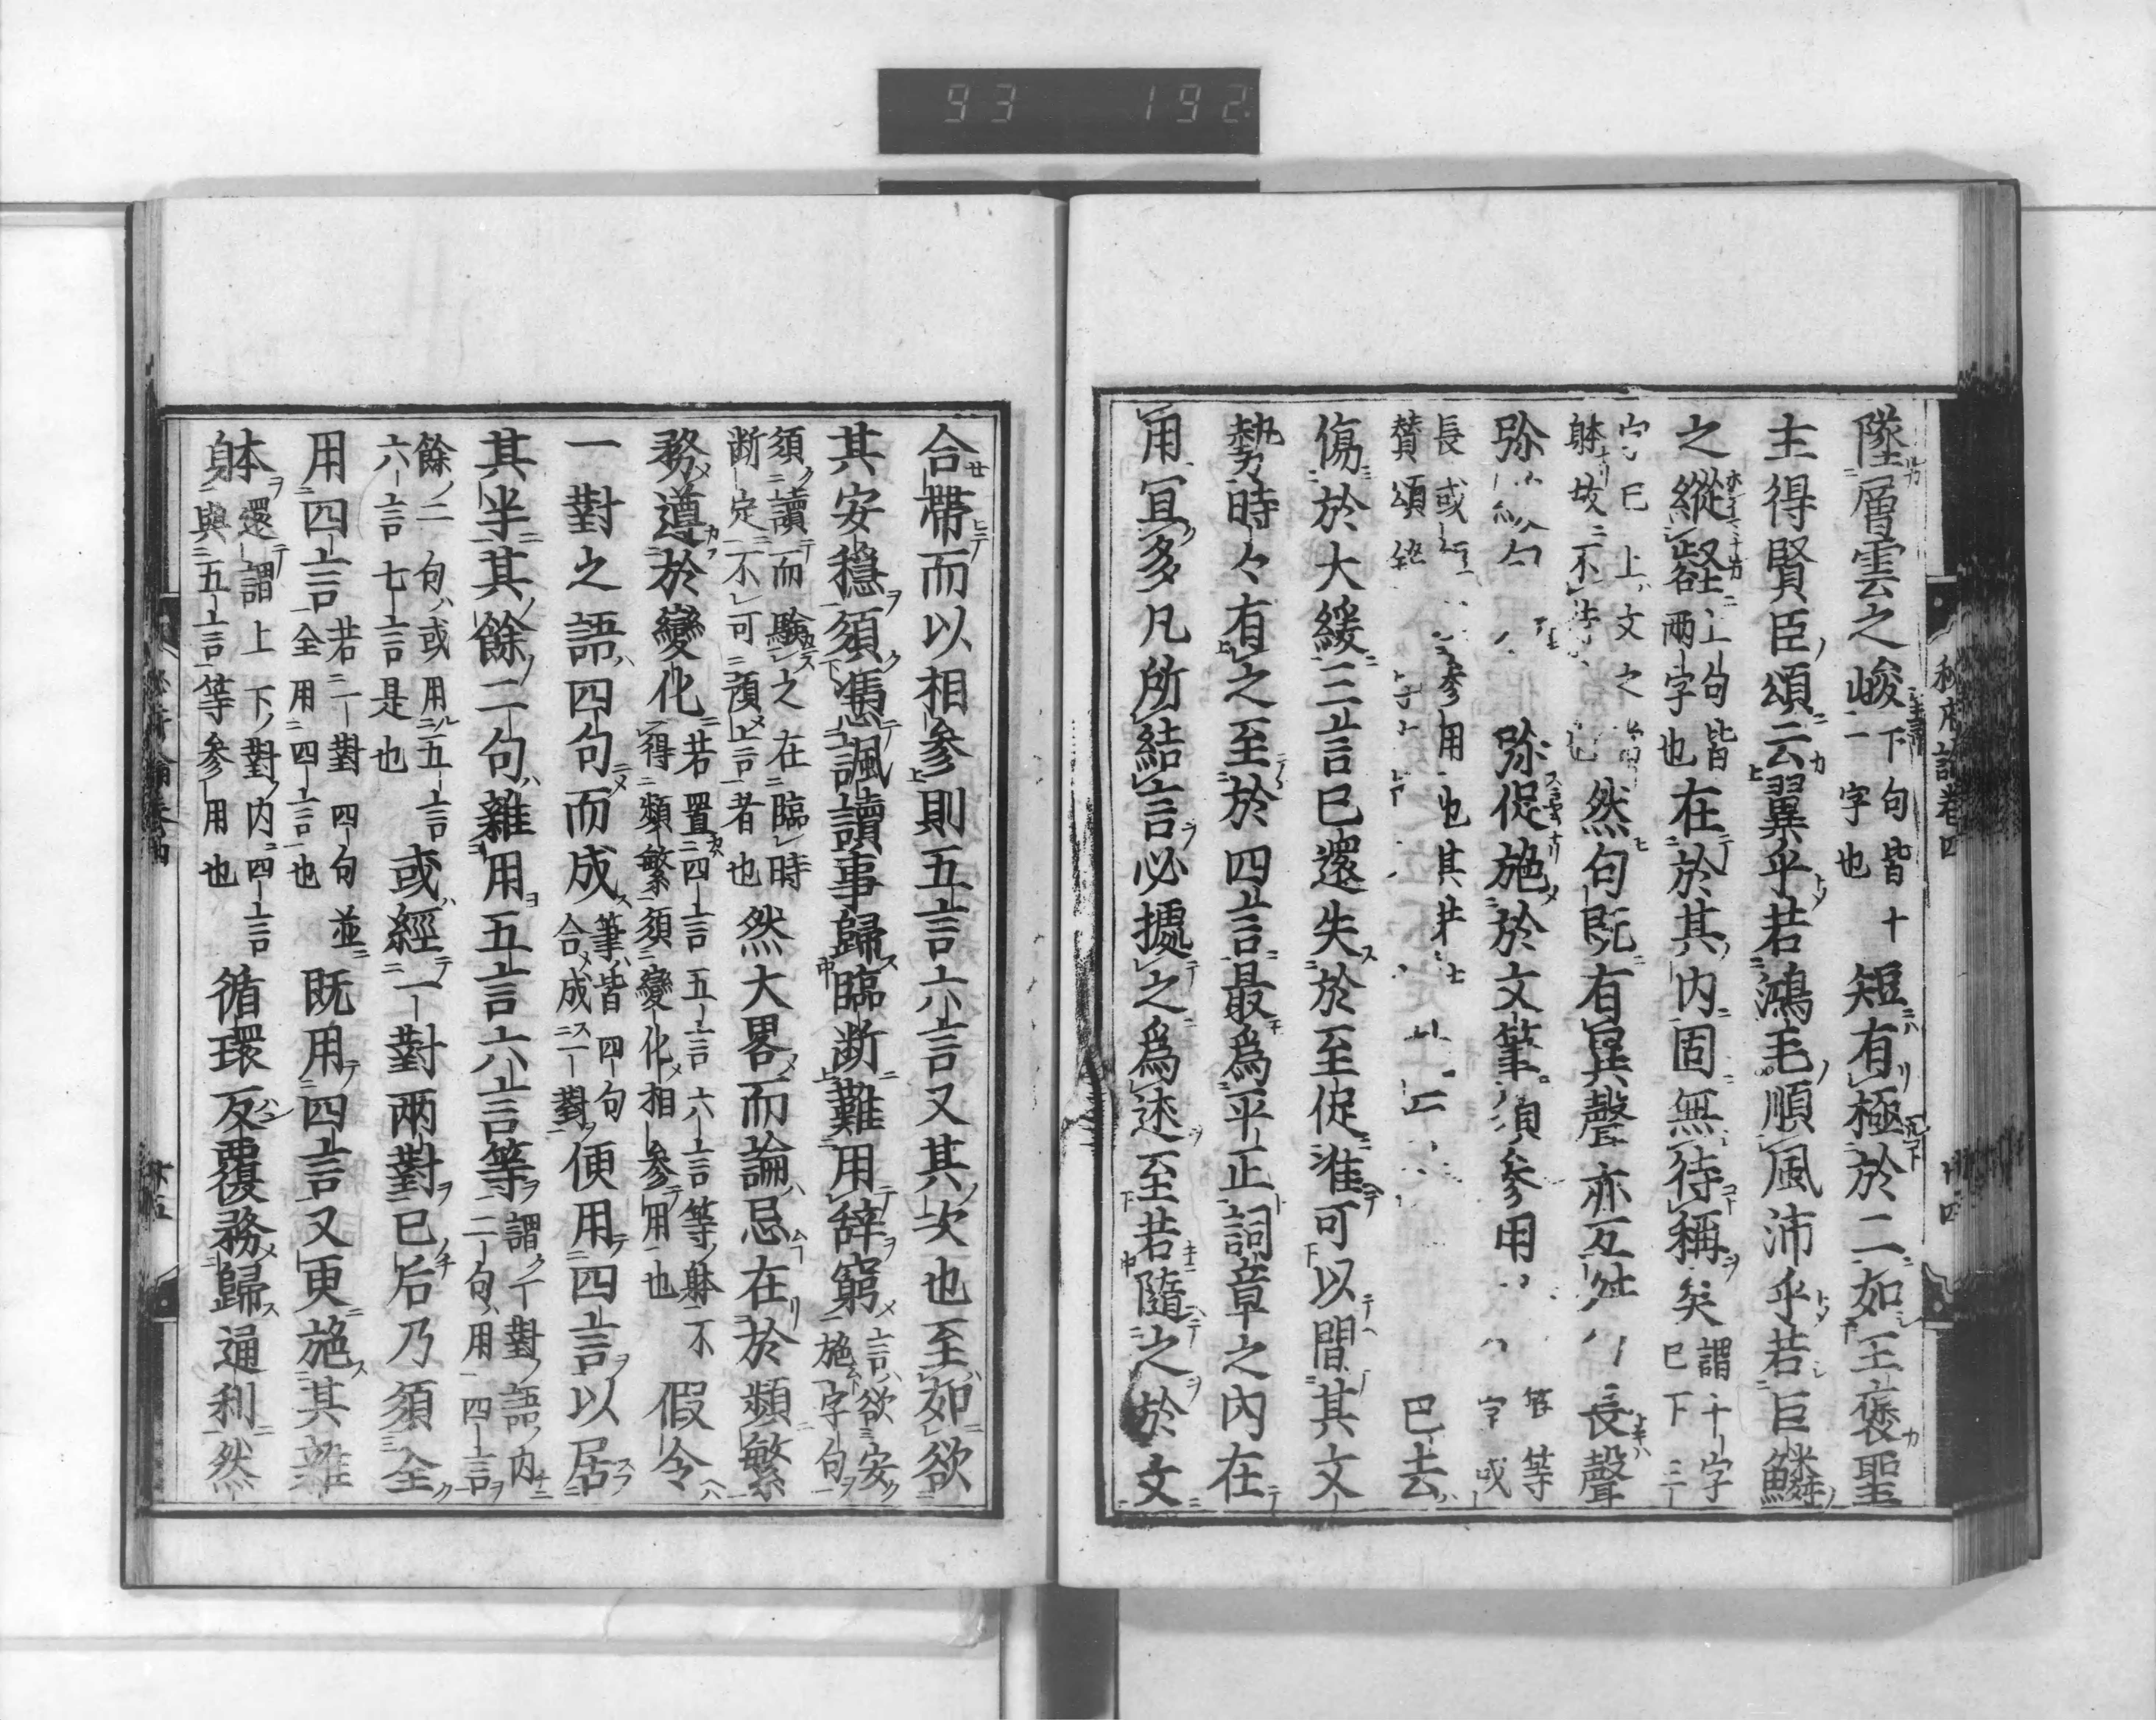 93 192
秘府論卷四
墜層雲之峻下句皆十一字也短有極於二如王褒聖
主得賢臣頌云翼乎若鴻毛順風沛乎若巨鱗
之縱壑上句皆兩字也在於其内固無待稱矣謂十字已下三
字已上文之躰故不然句既有異聲亦互舛長聲
弥弥促施於文筆須參用等字或
長或參用也其贊頌已去
傷於大緩三言已還失於至促准可以間其文
勢時々有之至於四言最爲平正詞章之内在
用宜多凡所結言必據之爲述至若隨之於文
合帶而以相參則五言六言又其次也至如欲
其安穩須憑諷讀事歸臨斷難用辞窮言欲安施字句
須讀而驗之在臨時断定不可預言者也然大畧而論忌在於頻繁
務遵於變化若置四言五言六言等躰不得頻繁須變化相參用也假令
一對之語四句而成筆皆四句合成一對便用四言以居
其半其餘二句雜用五言六言等謂一對語内二句用四言
餘二句或用五言六言七言是也或經一對兩對已后乃須全
用四言若一對四句並全用四言也既用四言又更施其雜
躰還謂上下對内四言與五言等參用也循環反覆務歸通利然